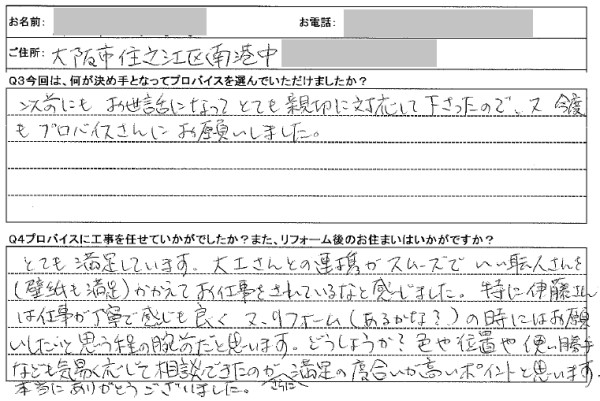 お名前:
お電話:
ご住所: 大阪市住之江区南港中
Q3今回は、何が決め手となってプロバイスを選んでいただけましたか?
以前にも お世話になって とても 親切に対応して 下さったので、又 今度
も プロバイスさんに お願いしました。
Q4プロバイスに工事を任せていかがでしたか?また、リフォーム後のお住まいはいかがですか?
とても 満足しています。大工さんとの連携が スムーズで いい職人さんを
(壁紙も満足)かかえて お仕事をされているなと 感じました。 特に 伊藤さん
は仕事が丁寧で感じも良く 又、リフォーム(あるかな?)の時にはお願
いしたいと 思う程の腕前だと思います。どうしようか? 色や位置や 使い勝手
なども気易く応じて 相談できたのが さらに 満足の度合いが高いポイントと思います。
本当に ありがとうございました。